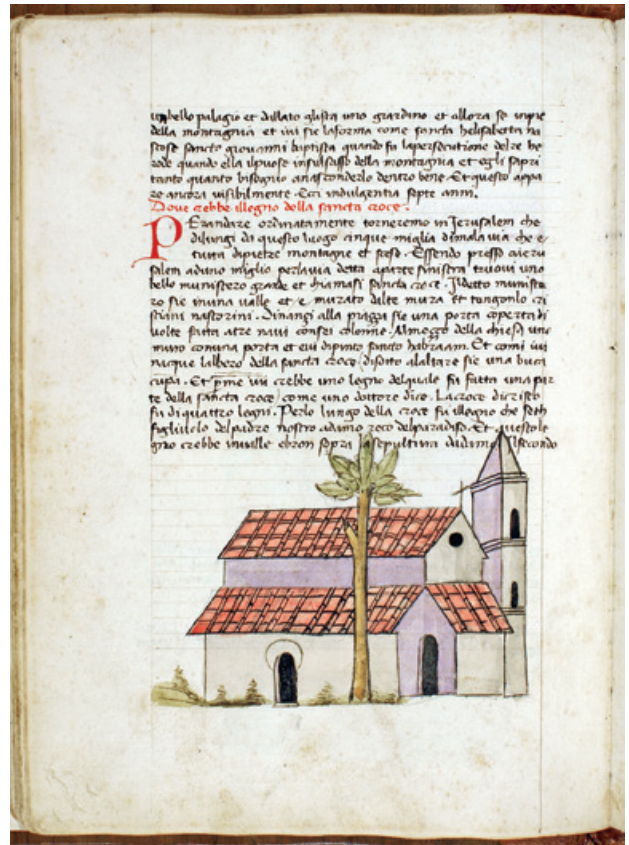 un bello palagio et dallato glista uno giardino et allora se inpie
della montagnia et ivi sie laforma come sancta helisabetta na
scose sancto giovanni baptista quando fu lapersecutione delre he
rode quando ella ilpuose infulsasso della montagnia et egli sapri
tanto quanto bisognio anasconderlo dentro bene. Et questo appa
re ancora visibilmente. Ecci indulgentia septe anni.
Dove crebbe illegno della sancta croce.
PErandare ordinatamente torneremo in Jerusalem che
dilungi da questo luogo cinque miglia dimala via che e
tutta dipietre montagne et scese. Essendo presso aieru
salem aduno miglio perlavia detta aparte sinistra truovi uno
bello munistero grande et chiamasi sancta croce. Ildetto muniste
ro sie inuna valle et e murato dalte mura et tengonlo cri
stiani nastorini. Dinanzi alla si e una porta coperta di
volte fatta atre navi consei colonne. Almezzo della chiesa uno
muro conuna porta et evi dipinto sancto habraam. Et comi ivi
nacque lalbero della sancta croce disotto alaltare sie una buca
cupa. Et ivi crebbe uno legno delquale fu fatta una par
te della sancta croce come uno dottore dice. Lacroce dicristo
fu diquattro legni. Perlo lungo della croce fu illegno che seth
figliuolo delpadre nostro adamo reco delparadiso. Et questo le
gno crebbe invalle ebron sopra lasepultura dadamo. Ilsecondo